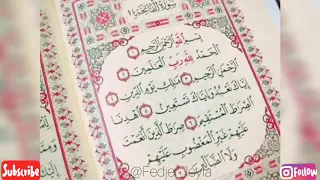 سورة الفاتحة
بِسْمِ اللَّهِ الرَّحْمَٰنِ الرَّحِيمِ ١
الْحَمْدُ لِلَّهِ رَبِّ الْعَالَمِينَ ٢
الرَّحْمَٰنِ الرَّحِيمِ ٣ مَالِكِ يَوْمِ الدِّينِ ٤
إِيَّاكَ نَعْبُدُ وَإِيَّاكَ نَسْتَعِينُ ٥ اهْدِنَا
الصِّرَاطَ الْمُسْتَقِيمَ ٦ صِرَاطَ الَّذِينَ أَنْعَمْتَ
عَلَيْهِمْ غَيْرِ الْمَغْضُوبِ عَلَيْهِمْ
وَلَا الضَّالِّينَ ٧
Subscribe
Follow